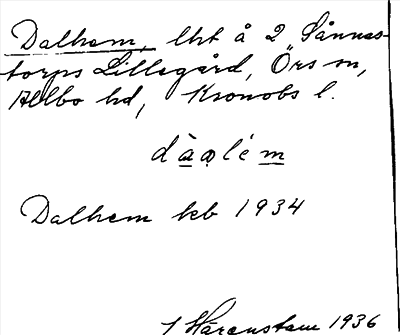 Dalhem, lht å 2 Sånnas-
torps Lillegård, Örs sn,
Allbo hd, Kronobs l.
dàǫlém
Dalhem kb 1934
J Hårenstam 1936